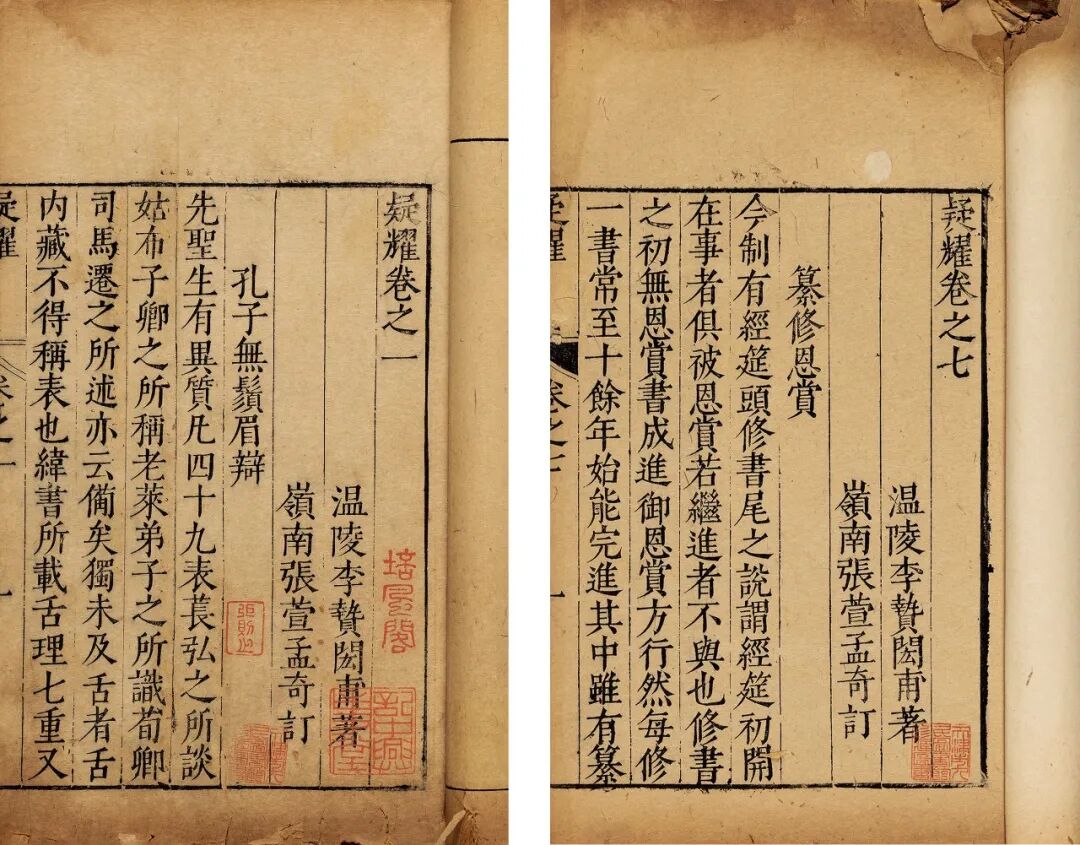 疑耀卷之一
温陵李贄閎甫著
嶺南張萱孟奇訂
孔子無鬚眉辯
先聖生有異質凡四十九表萇弘之所談
姑布子卿之所稱老萊弟子之所識荀卿
司馬遷之所述亦云備矣獨未及舌者舌
内藏不得稱表也緯書所載舌理七重又
疑耀
卷之一
一
培風閣
張則之
疑耀卷之七
温陵李贄閎甫著
嶺南張萱孟奇訂
纂修恩賞
今制有經筵頭修書尾之說謂經筵初開
在事者俱被恩賞若繼進者不與也修書
之初無恩賞書成進御恩賞方行然每修
一書常至十餘年始能完進其中雖有纂
疑耀
卷之七
一